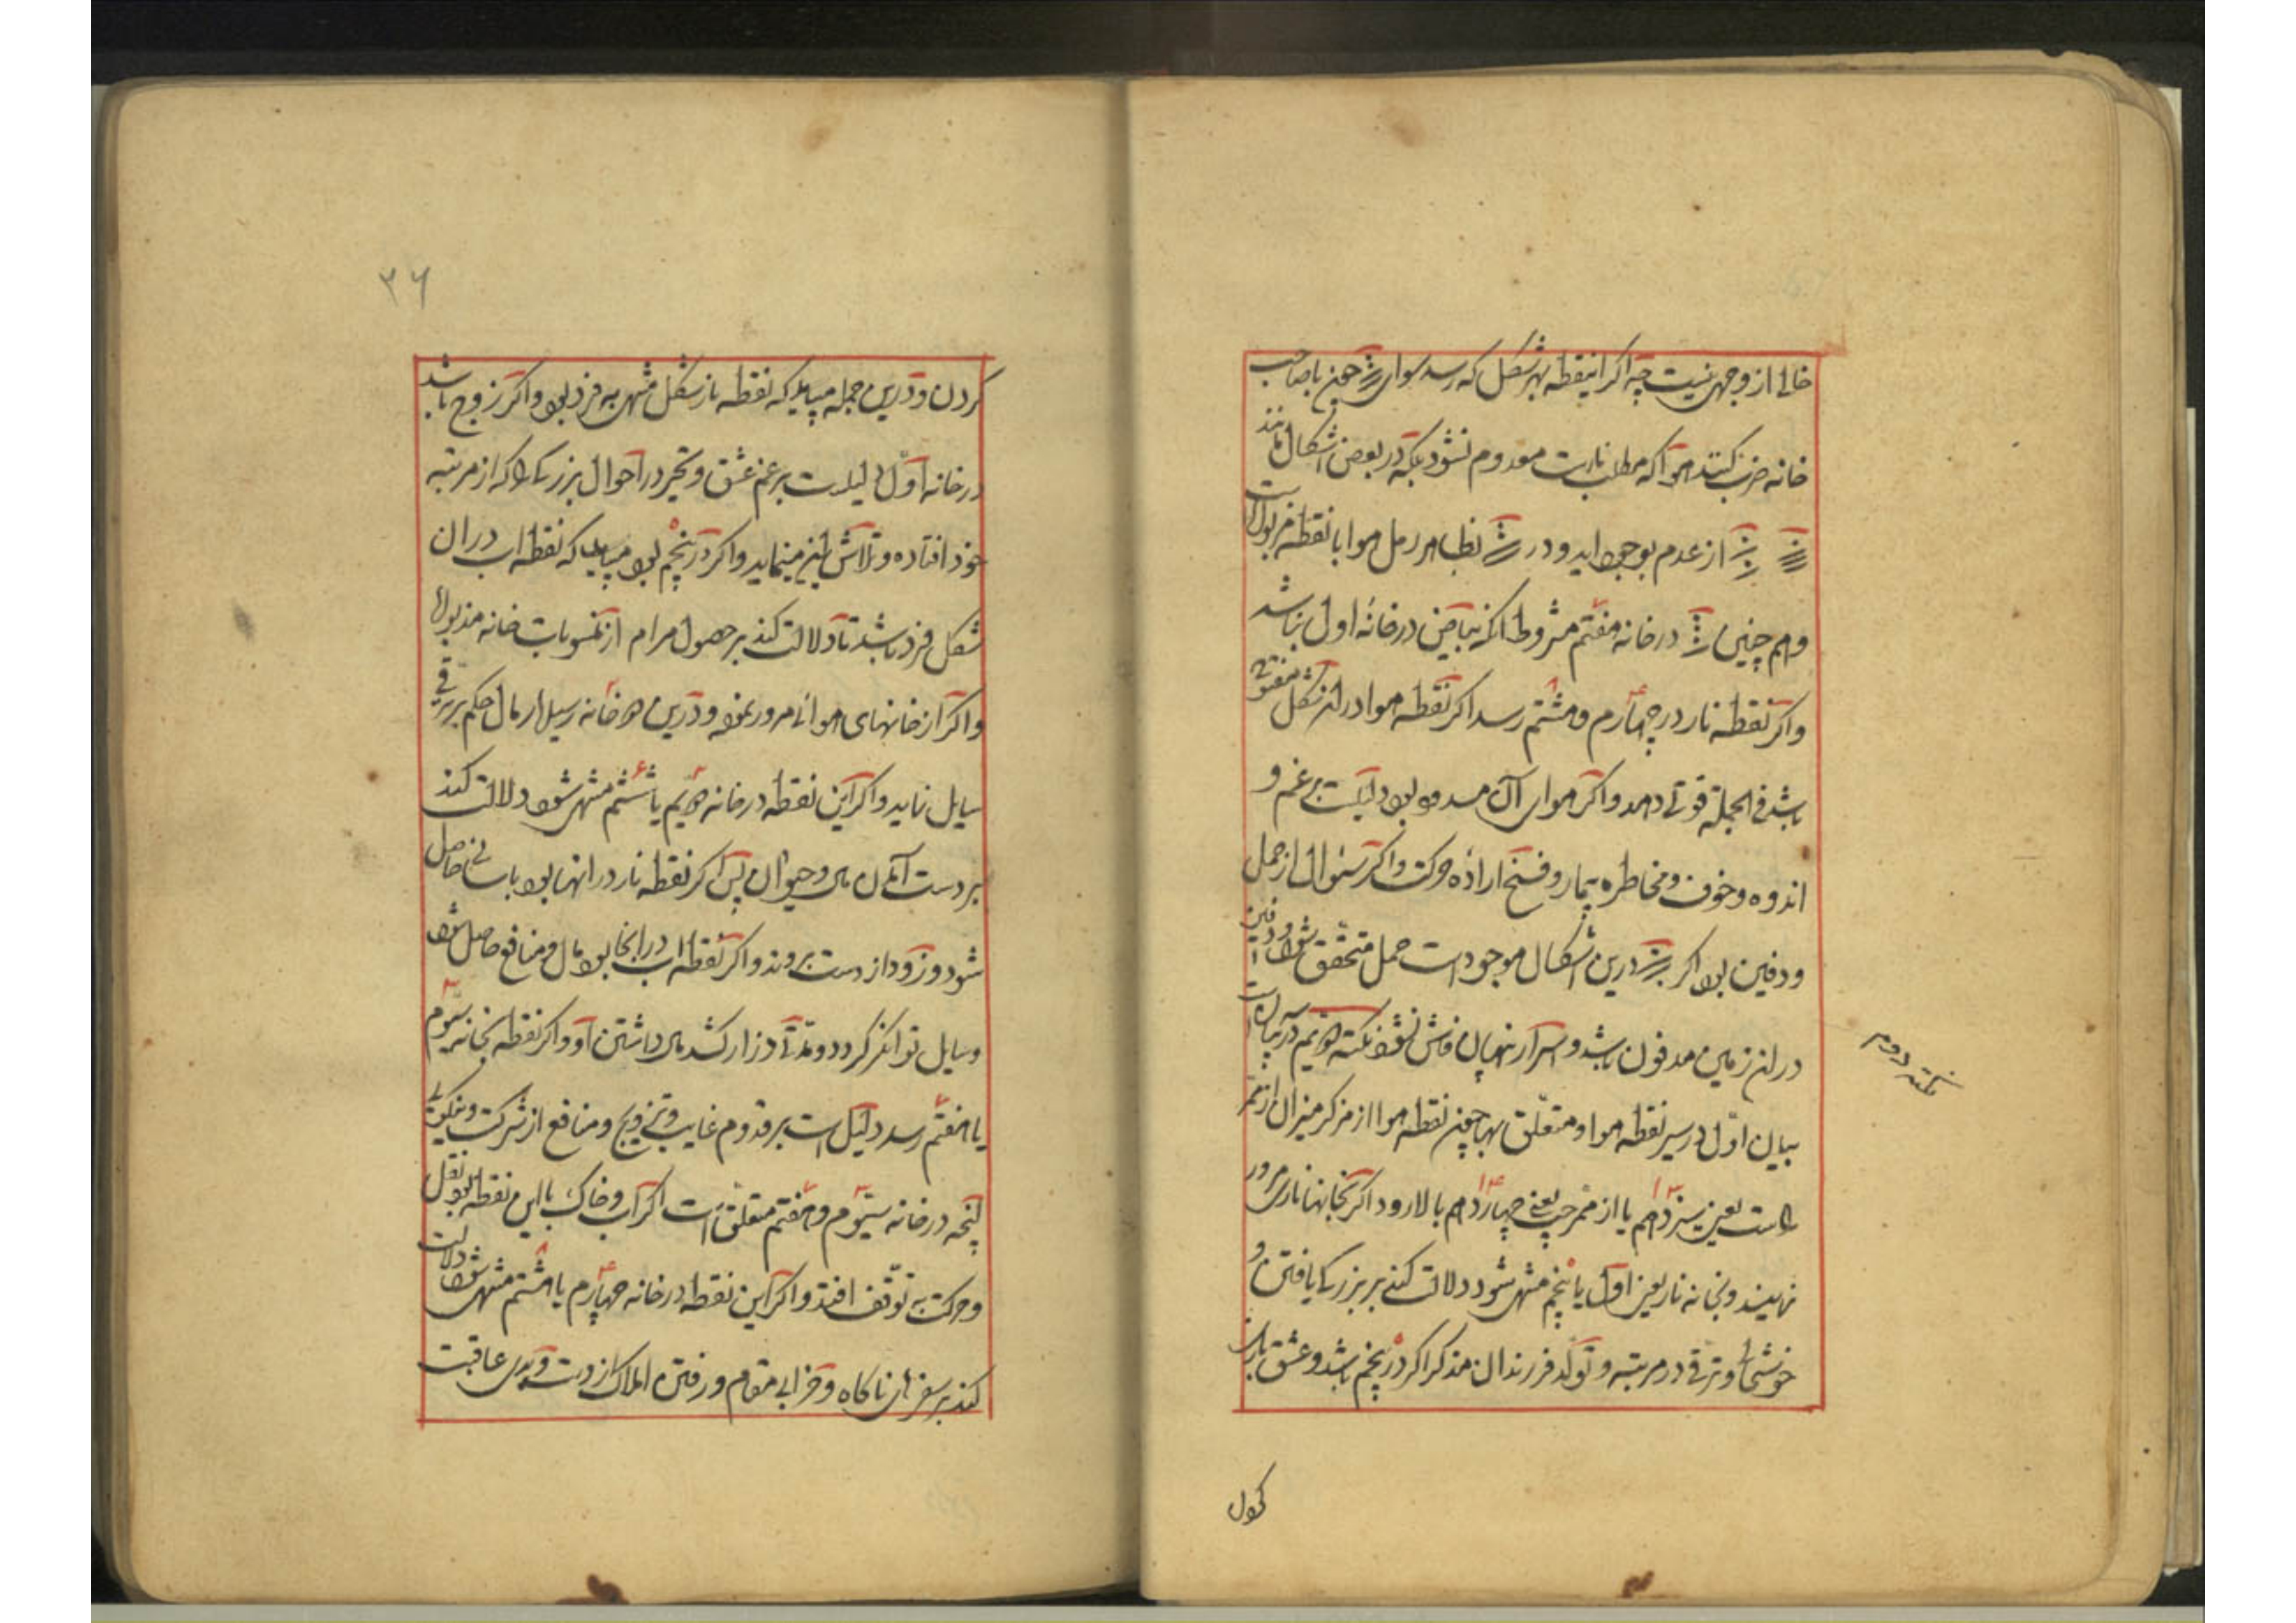 خالی از وجهی نیست چه اگر این نقطه بهر شکل که رسد سوای چون با صاحب
خانه ضرب کنند هوا که مطلب نارست معدوم نشود بلکه در بعض اشکال مانند
از عدم بوجود اید و در نظیر رمل هوا با نقطه مربوط است
و هم چنین در خانه هفتم مشروط انکه بیاض در خانه اول نباشد
و اگر نقطه نار در چهارم و هشتم رسد اگر نقطه هوا در ان شکل مفتوح
باشد فی الجمله قوتی دهد و اگر هوای آن مسدود بود دلیلست بر غم و
اندوه و خوف و مخاطره بیمار و فسخ اراده حرکت و اگر سئوال از حمل
و دفین بود اگر درین اشکال موجود است حمل متحقق شود و دفین
در ان زمین مدفون باشد و اسرار نهان فاش نشود نکته دویم در بیان
نکته دوم
بیان اول در سیر نقطه هوا و متعلق بها چون نقطه هوا از مرکز میزان از ممر
راست یعنی سیزدهم یا از ممر چپ یعنی چهاردهم بالا رود اگر بخانهای نار مرور
نماید و بخانه نار یعنی اول یا پنجم منتهی شود دلالت کند بر بزرگی یافتن و
خوشحالی و ترقی در مرتبه و تولد فرزندان مذکر اگر در پنجم باشد و عشق
کردن
۳۶
کردن و درین جمله میباید که نقطه نار شکل منتهی به فرد بود و اگر زوج باشد
در خانه اول دلیلست بر غم عشق و تحیر در احوال بزرگی که از مرتبه
خود افتاده و تلاش این مینماید و اگر در پنجم بود میباید که نقطه اب در ان
شکل فرد باشد تا دلالت کند بر حصول مرام از منسوبات خانه مذبوله
و اگر از خانهای هوائی مرور نموده و درین دو خانه رسید ارمال حکم بر ترقی
سایل نماید و اگر این نقطه در خانه دویم یا ششم منتهی شود دلالت کند
بر دست آمدن مال و حیوان پس اگر نقطه نار در انها بود باسانی حاصل
شود و زود از دست برود و اگر نقطه اب در انجا بود مال و منافع حاصل شود
و سایل توانگر گردد و مدتی دراز کشد مال داشتن او و اگر نقطه بخانه سیوم
یا هفتم رسد دلیل است بر قدوم غایب و تزویج و منافع از شرکت
پنجه در خانه سیوم و هفتم متعلق است اگر آب و خاک با این نقطه بود نقل
و حرکت به توقف افتد و اگر این نقطه در خانه چهارم یا هشتم منتهی شود دلالت
کند بر سفرهای ناگاه و خرابی مقام و رفتن املاک از دست و بدی عاقبت